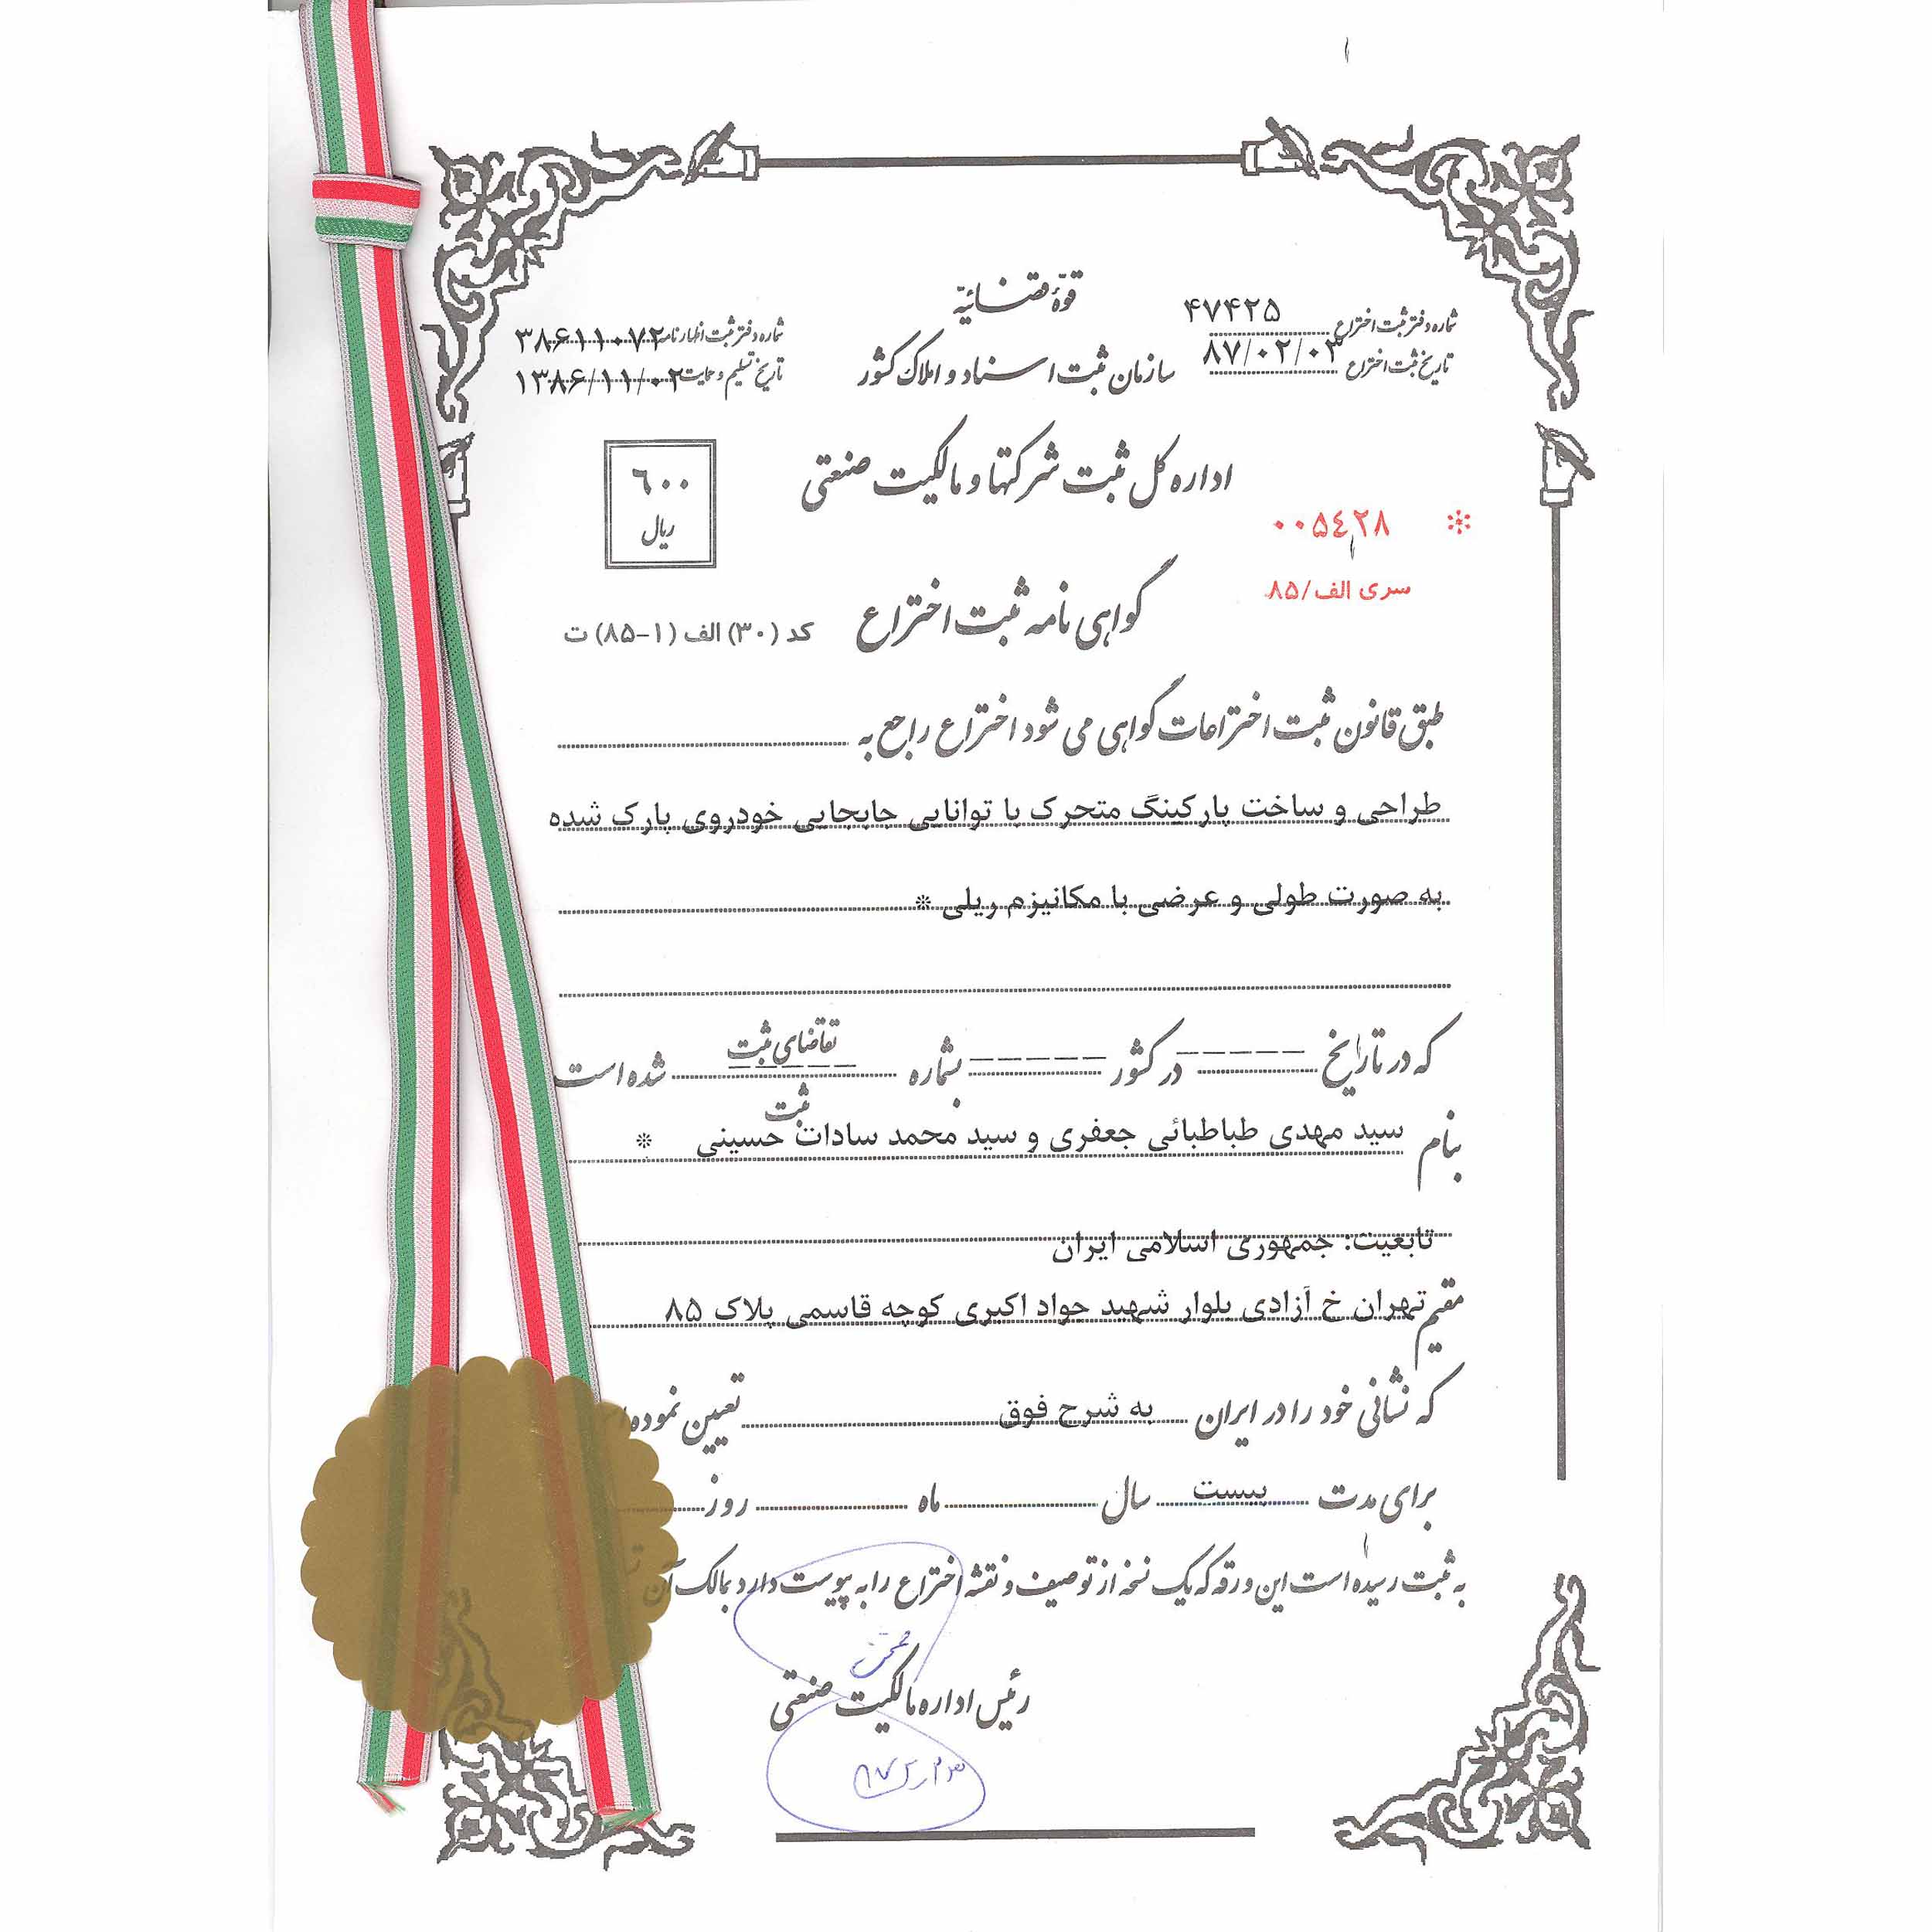 قوهٔ قضائیّه
شماره دفتر ثبت اختراع ۴۷۴۲۵
تاریخ ثبت اختراع ۸۷/۰۲/۰۳
سازمان ثبت اسناد و املاک کشور
شماره دفتر ثبت اظهارنامه ۳۸۶۱۱۰۷۲
تاریخ تسلیم و حمایت ۱۳۸۶/۱۱/۰۲
اداره کل ثبت شرکتها و مالکیت صنعتی
۶۰۰
ریال
۰۰۵۴۲۸ *
سری الف/۸۵
گواهی نامه ثبت اختراع
کد (۳۰) الف (۱-۸۵) ت
طبق قانون ثبت اختراعات گواهی می شود اختراع راجع به
طراحی و ساخت پارکینگ متحرک با توانایی جابجایی خودروی پارک شده
به صورت طولی و عرضی با مکانیزم ریلی *
که در تاریخ ----- در کشور ----- بشماره ----- تقاضای ثبت شده است
ثبت
بنام سید مهدی طباطبائی جعفری و سید محمد سادات حسینی *
تابعیت: جمهوری اسلامی ایران
مقیم تهران خ آزادی بلوار شهید جواد اکبری کوچه قاسمی پلاک ۸۵
که نشانی خود را در ایران به شرح فوق تعیین نموده
برای مدت بیست سال ماه روز
به ثبت رسیده است این ورقه که یک نسخه از توصیف و نقشه اختراع را به پیوست دارد بمالک آن
رئیس اداره مالکیت صنعتی